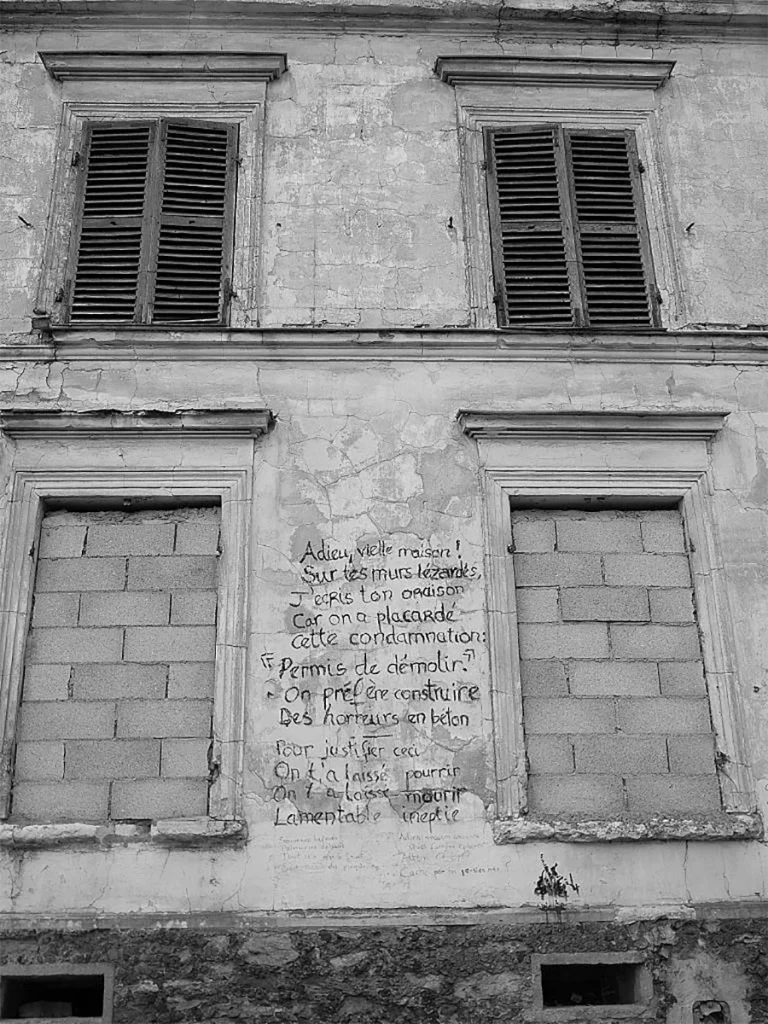 Adieu, vielle maison !
Sur tes murs lézardés,
J'ecris ton oraison
Car on a placardé
Cette condamnation:
"Permis de démolir."
On préfère construire
Des horreurs en béton
Pour justifier ceci
On t'a laissé pourrir
On t'a laissé mourir
Lamentable ineptie